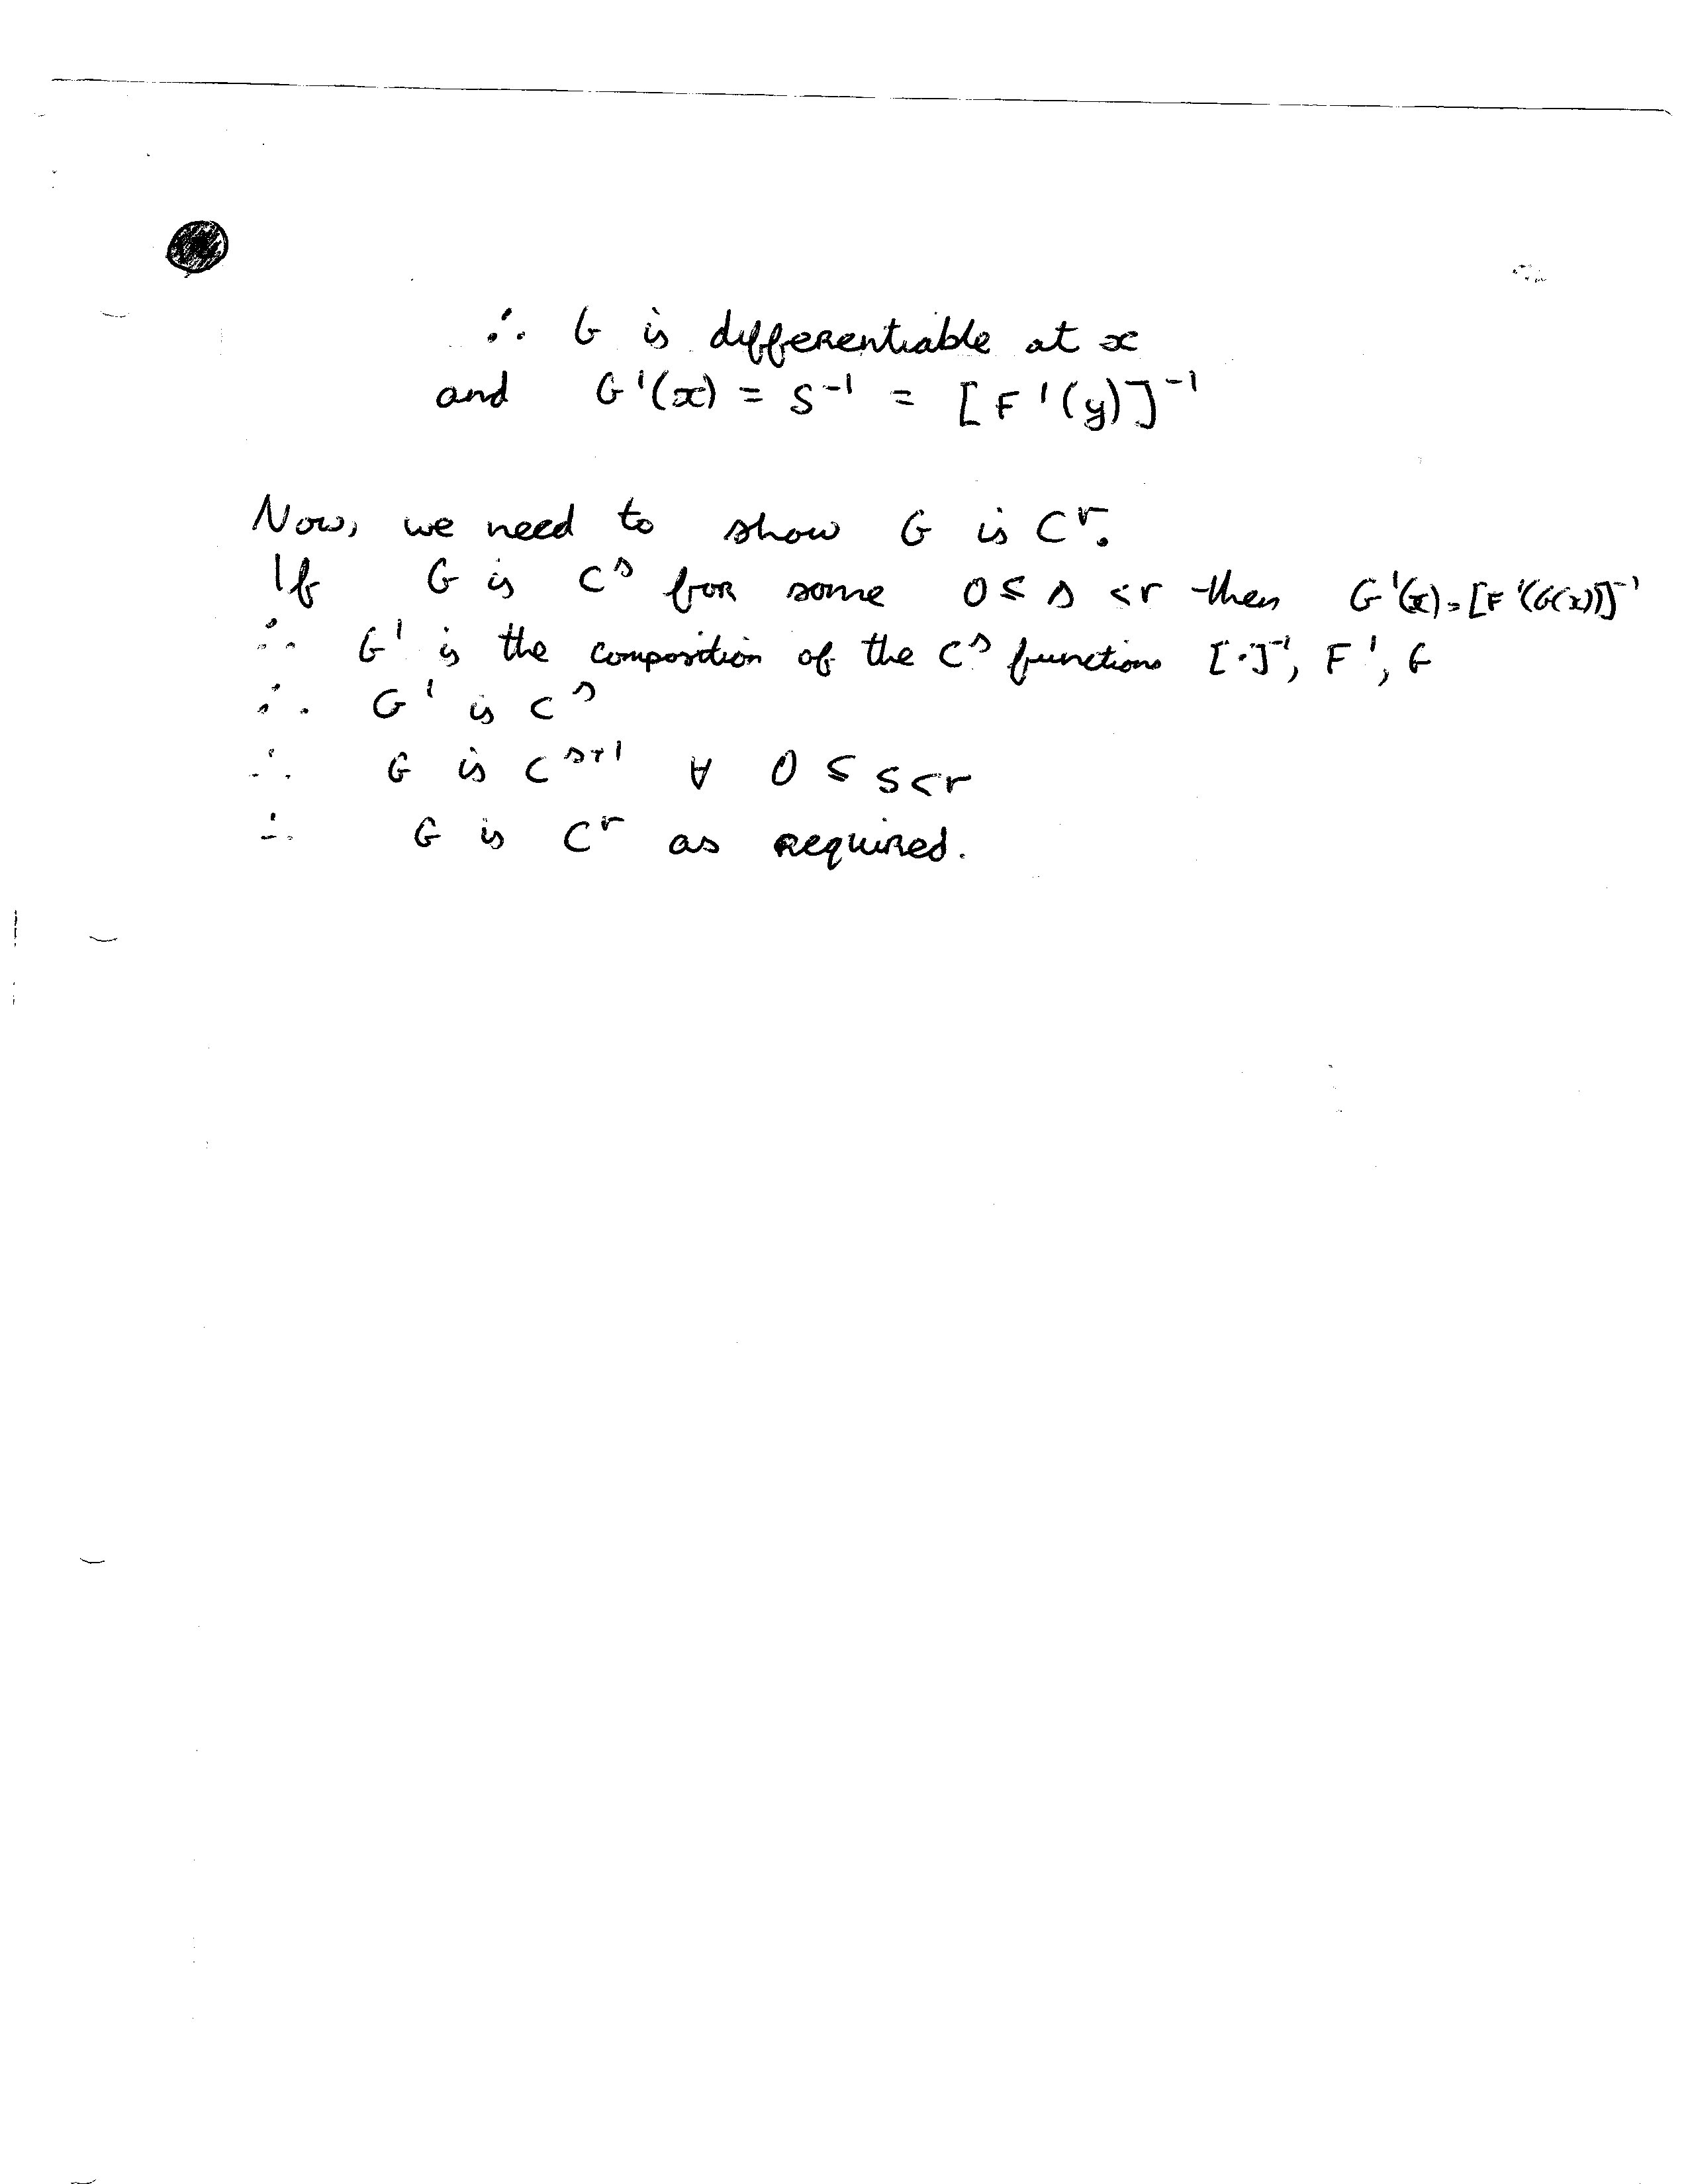 ∴ G is differentiable at x
and G'(x) = S⁻¹ = [F'(y)]⁻¹
Now, we need to show G is Cʳ.
If G is Cˢ for some 0 ≤ s < r then G'(x) = [F'(G(x))]⁻¹
∴ G' is the composition of the Cˢ functions [·]⁻¹, F', G
∴ G' is Cˢ
∴ G is Cˢ⁺¹ ∀ 0 ≤ s < r
∴ G is Cʳ as required.